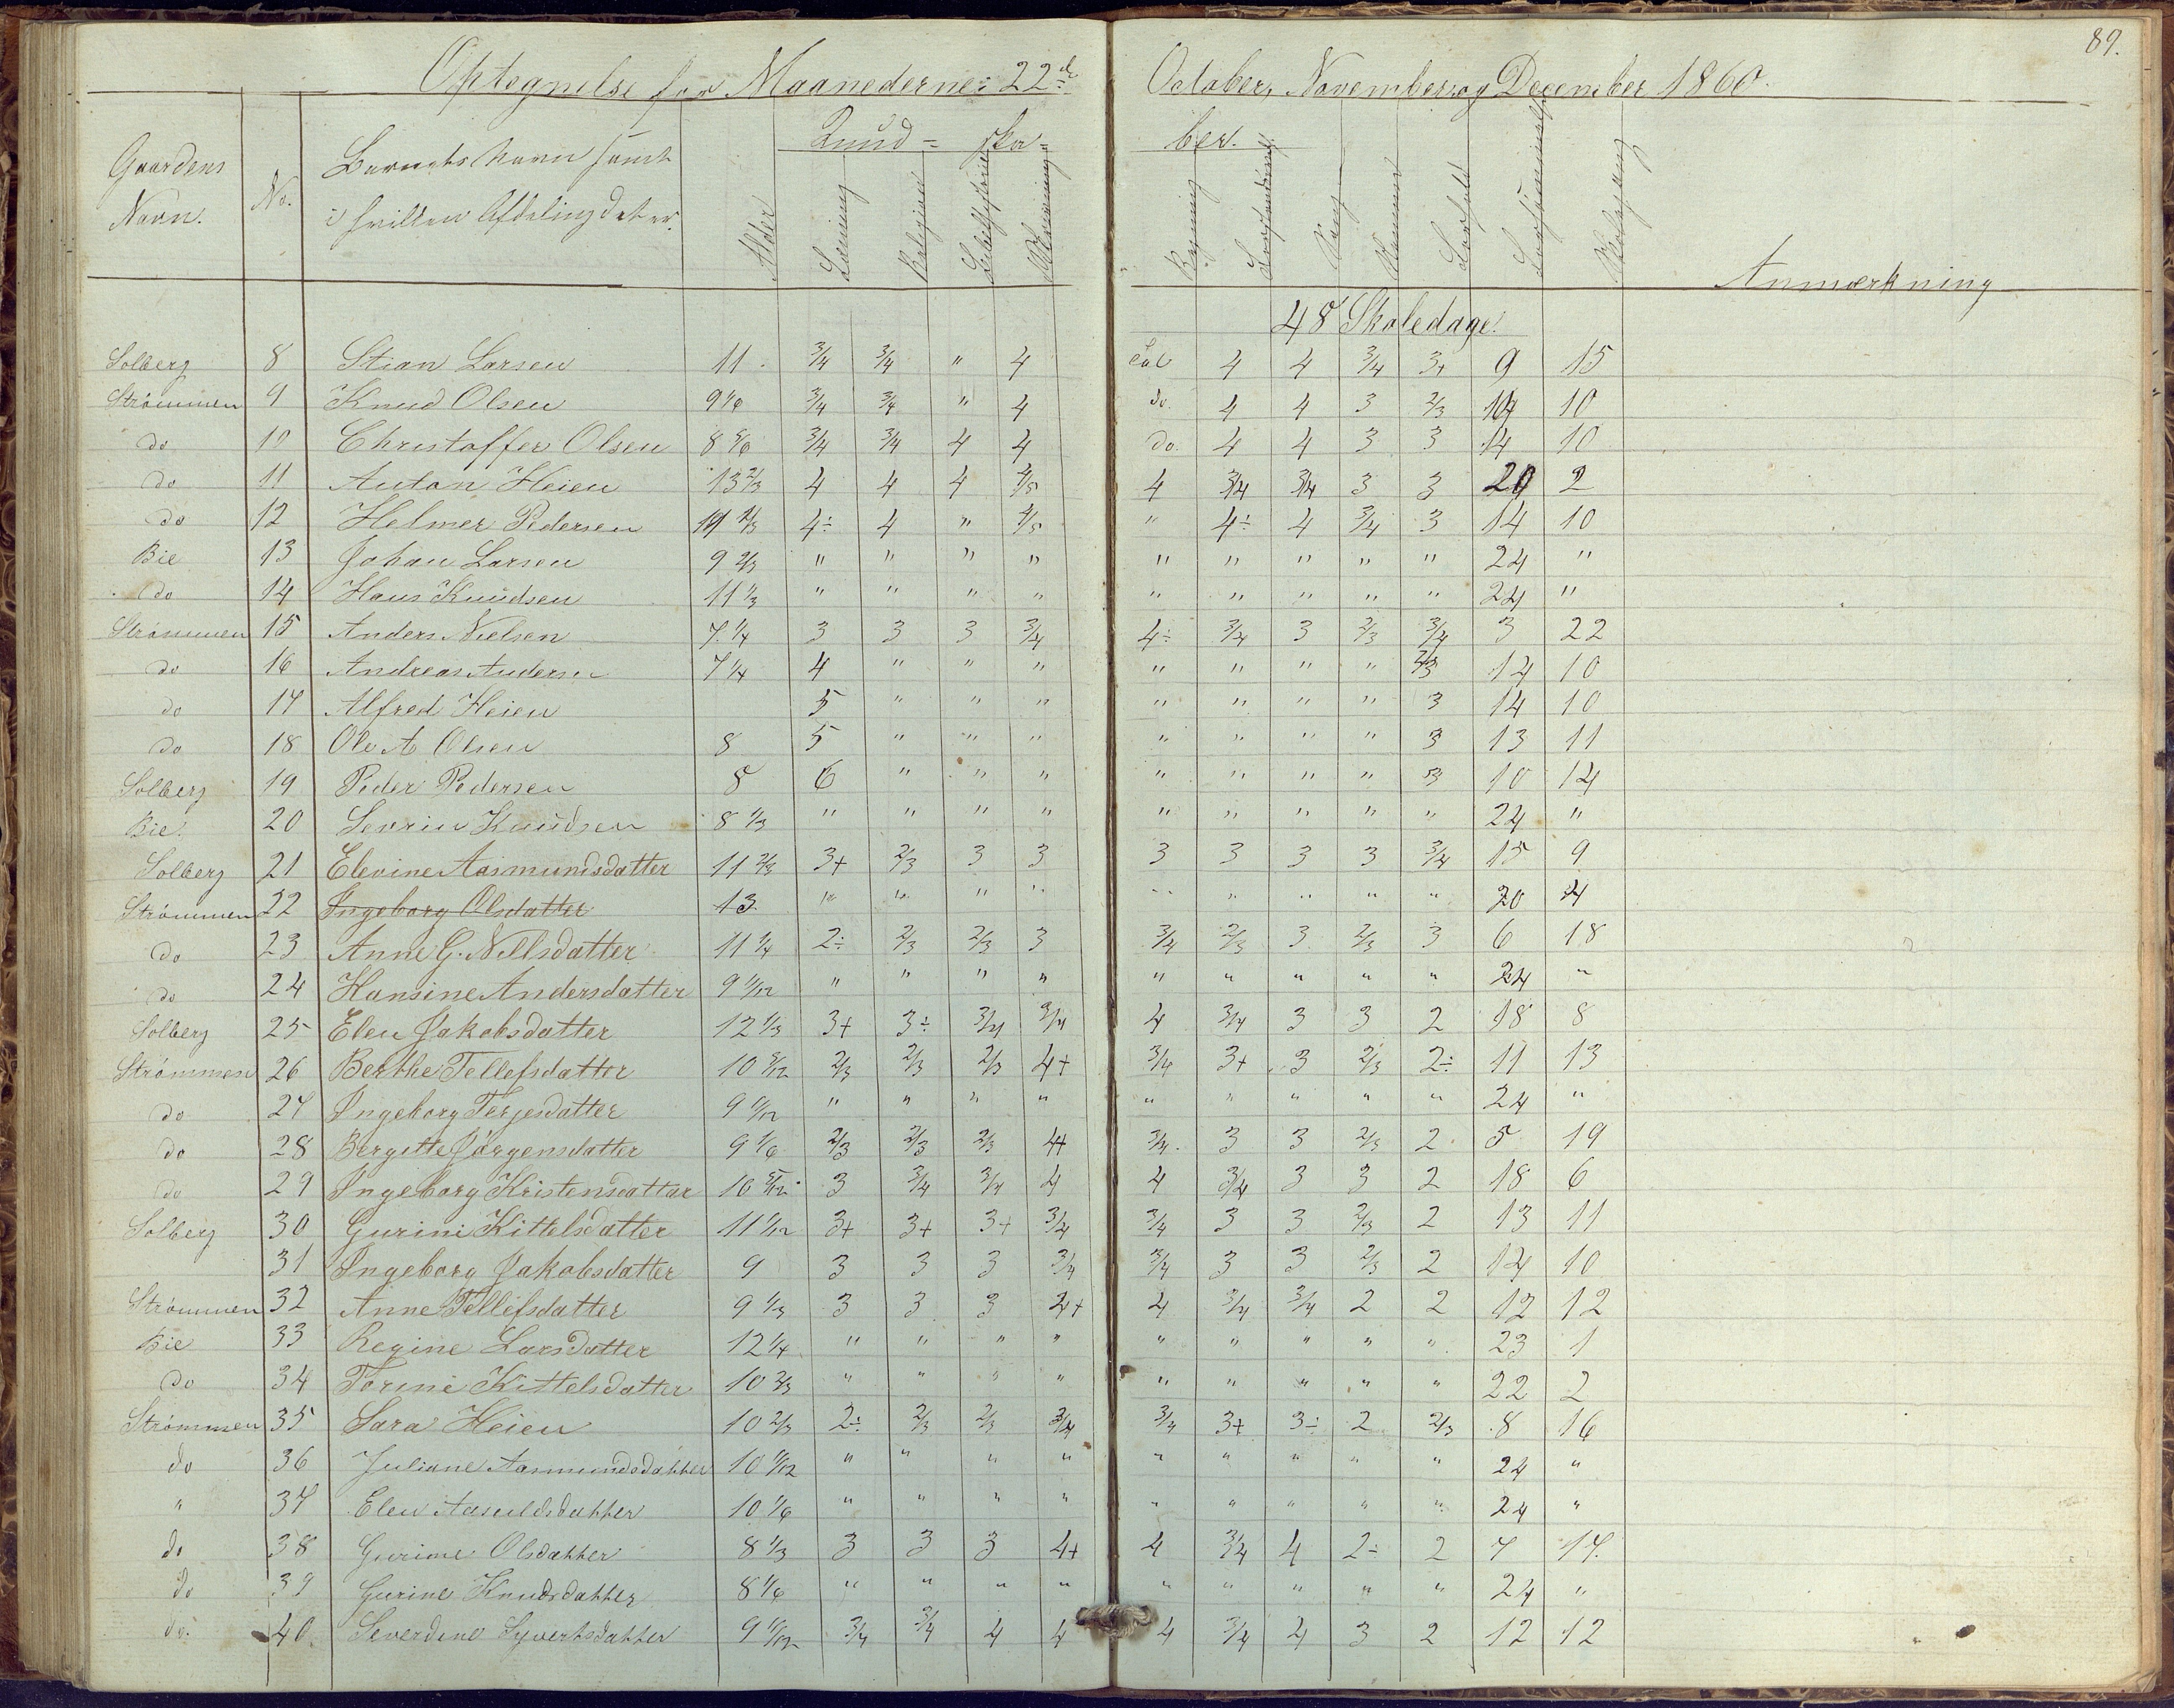 89.
Optegnelse for Maanederne: 22de October, November og December 1860.
Gaardens Navn. No. Barnets Navn samt i hvilken Afdeling det er. Alder Kund- ska- ber.
Læsning Religion Skrivning Regning Sang Anmærkning
48 Skoledage.
Solberg 8 Stian Larsen 11 3/4 3/4 " 4 4 4 3/4 3+ 9 15
Strømmen 9 Knud Olsen 9 1/6 3/4 3/4 " 4 do. 4 4 3 2/3 14 10
do 10 Christoffer Olsen 8 5/6 3/4 3/4 4 4 do. 4 4 3 3 14 10
do 11 Anton Heien 13 2/3 4 4 4 4/5 4 3/4 3/4 3 3 20 2
do 12 Helmer Pedersen 4÷ 4 " 4/5 " 4÷ 4 3/4 3 14 10
Bie 13 Johan Larsen 9 2/3 " " " " " " " " " 24 "
do 14 Hans Knudsen 11 1/3 " " " " " " " " " 24 "
Strømmen 15 Anders Nielsen 7 1/4 3 3 3 3/4 4÷ 3/4 3 2/3 3/4 3 22
do 16 Andreas Andersen 7 1/4 4 " " " " " " " 2/3 14 10
do 17 Alfred Heien 5 " " " " " " " 3 14 10
do 18 Ole A Olsen 8 5 " " " " " " " 3 13 11
Solberg 19 Peder Pedersen 8 6 " " " " " " " 3 10 14
Bie. 20 Sevrin Knudsen 8 1/3 " " " " " " " " " 24 "
Solberg 21 Elevine Aasmundsdatter 11 2/3 3+ 2/3 3 3 3 3 3 3 3/4 15 9
Strømmen 22 Ingeborg Olsdatter 13 " " " " " " " " " 20 4
do 23 Anne G. Nilsdatter 11 1/4 2÷ 2/3 2/3 3 3/4 2/3 3 2/3 3 6 18
do 24 Hansine Andersdatter 9 1/12 " " " " " " " " " 24 "
Solberg 25 Elen Jakobsdatter 12 1/3 3+ 3÷ 3/4 3/4 4 3/4 3 3 2 18 8
Strømmen 26 Berthe Tellefsdatter 10 5/12 2/3 2/3 2/3 4+ 3/4 3+ 3 2/3 2÷ 11 13
do 27 Ingeborg Terjesdatter 9 " " " " " " " " " 24 "
do 28 Bergitte Jörgensdatter 9 1/6 2/3 2/3 2/3 4+ 3/4 3 3 2/3 2 5 19
do 29 Ingeborg Kristensdatter 10 5/12 3 3/4 3/4 4 4 3/4 3 3 2 18 6
Solberg 30 Gurine Kittelsdatter 11 1/12 3+ 3+ 3+ 3/4 3/4 3 3 2/3 2 13 11
31 Ingeborg Jakobsdatter 9 3 3 3 3/4 3/4 3 3 2/3 2 14 10
Strømmen 32 Anne Tellefsdatter 9 1/3 3 3 3 4+ 4 3/4 3/4 2 2 12 12
Bie 33 Regine Larsdatter 12 1/4 " " " " " " " " " 23 1
do 34 Torine Kittelsdatter 10 2/3 " " " " " " " " " 22 2
Strømmen 35 Sara Heien 10 2/3 2÷ 2/3 2/3 3/4 3/4 3+ 3÷ 2 2/3 8 16
do 36 Juliane Aasmundsdatter 10 1/12 " " " " " " " " " 24 "
" 37 Elen Aasuldsdatter 10 1/6 " " " " " " " " " 24 "
do 38 Gurine Olsdatter 8 1/3 3 3 3 4+ 4 3/4 4 2÷ 2 7 17.
do 39 Gurine Knudsdatter 8 1/6 " " " " " " " " " 24 "
do. 40 Severdine Syvertsdatter 9 3/4 3/4 4 4 4 3/4 4 3 2 12 12